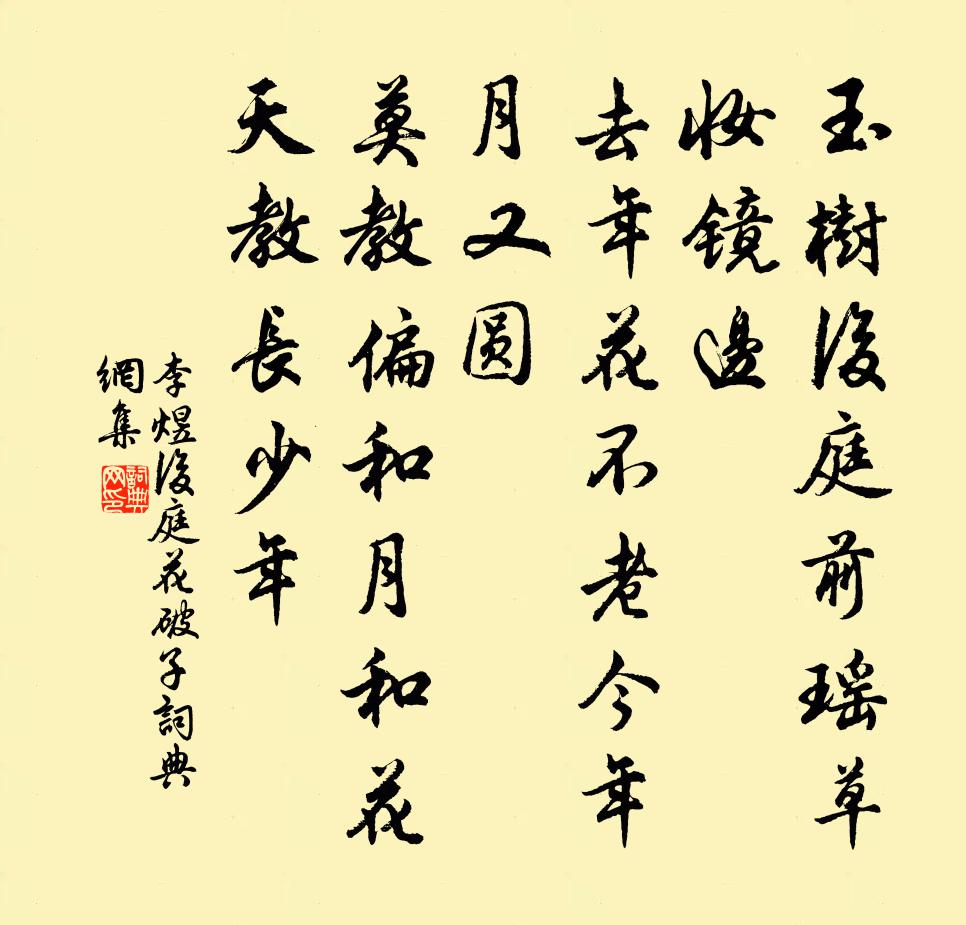 玉樹後庭前瑶草
妝镜邊
去年花不老今年
月又圓
莫教偏和月和花
天教長少年
李煜後庭花破子詞典
網集
詞典
网印